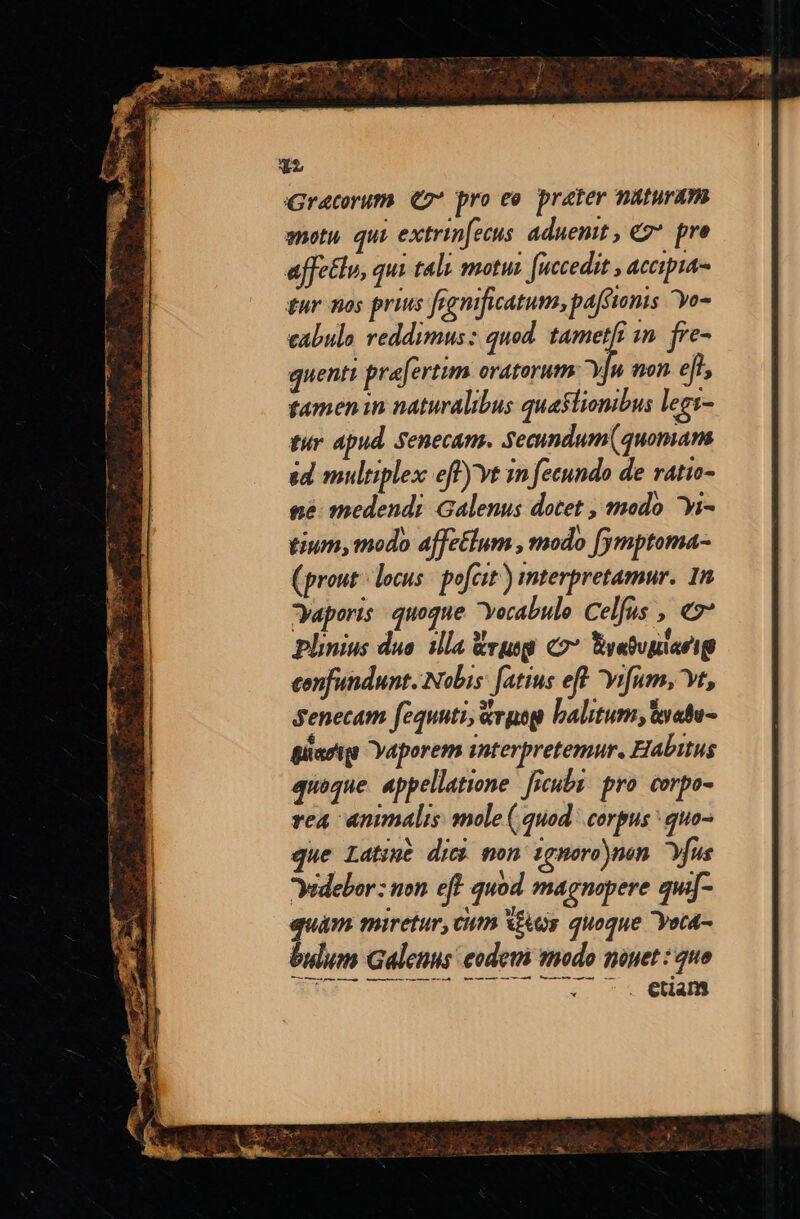 12
Græcorum & pro eo præter naturam
motu qui extrinſecus aduenit, & pro
affectu, qui tali motui ſuccedit, accipia-
tur nos prius ſignificatum, paſsionis vo-
cabulo reddimus: quod tametſi in fre-
quenti præſertim oratorum vſu non eſt,
tamen in naturalibus quæſtionibus legi-
tur apud Senecam. Secundum (quoniam
id multiplex eſt) vt in ſecundo de ratio-
ne medendi Galenus docet, modo vi-
tium, modo affectum, modo ſymptoma-
(prout locus poſcit) interpretamur. In
vaporis quoque vocabulo Celſus, &
Plinius duo illa ἄτμοψ & ἀναθυμίασιψ
confundunt. Nobis ſatius eſt viſum, vt,
Senecam ſequuti, ἄτμοψ halitum, ἀναθυ-
μίασιψ vaporem interpretemur. Habitus
quoque appellatione ſicubi pro corpo-
rea animalis mole (quod corpus quo-
que Latinè dici non ignoro) non vſus
videbor: non eſt quòd magnopere quiſ-
quàm miretur, cum quoque voca-
bulum Galenus eodem modo nouet: quo
etiam